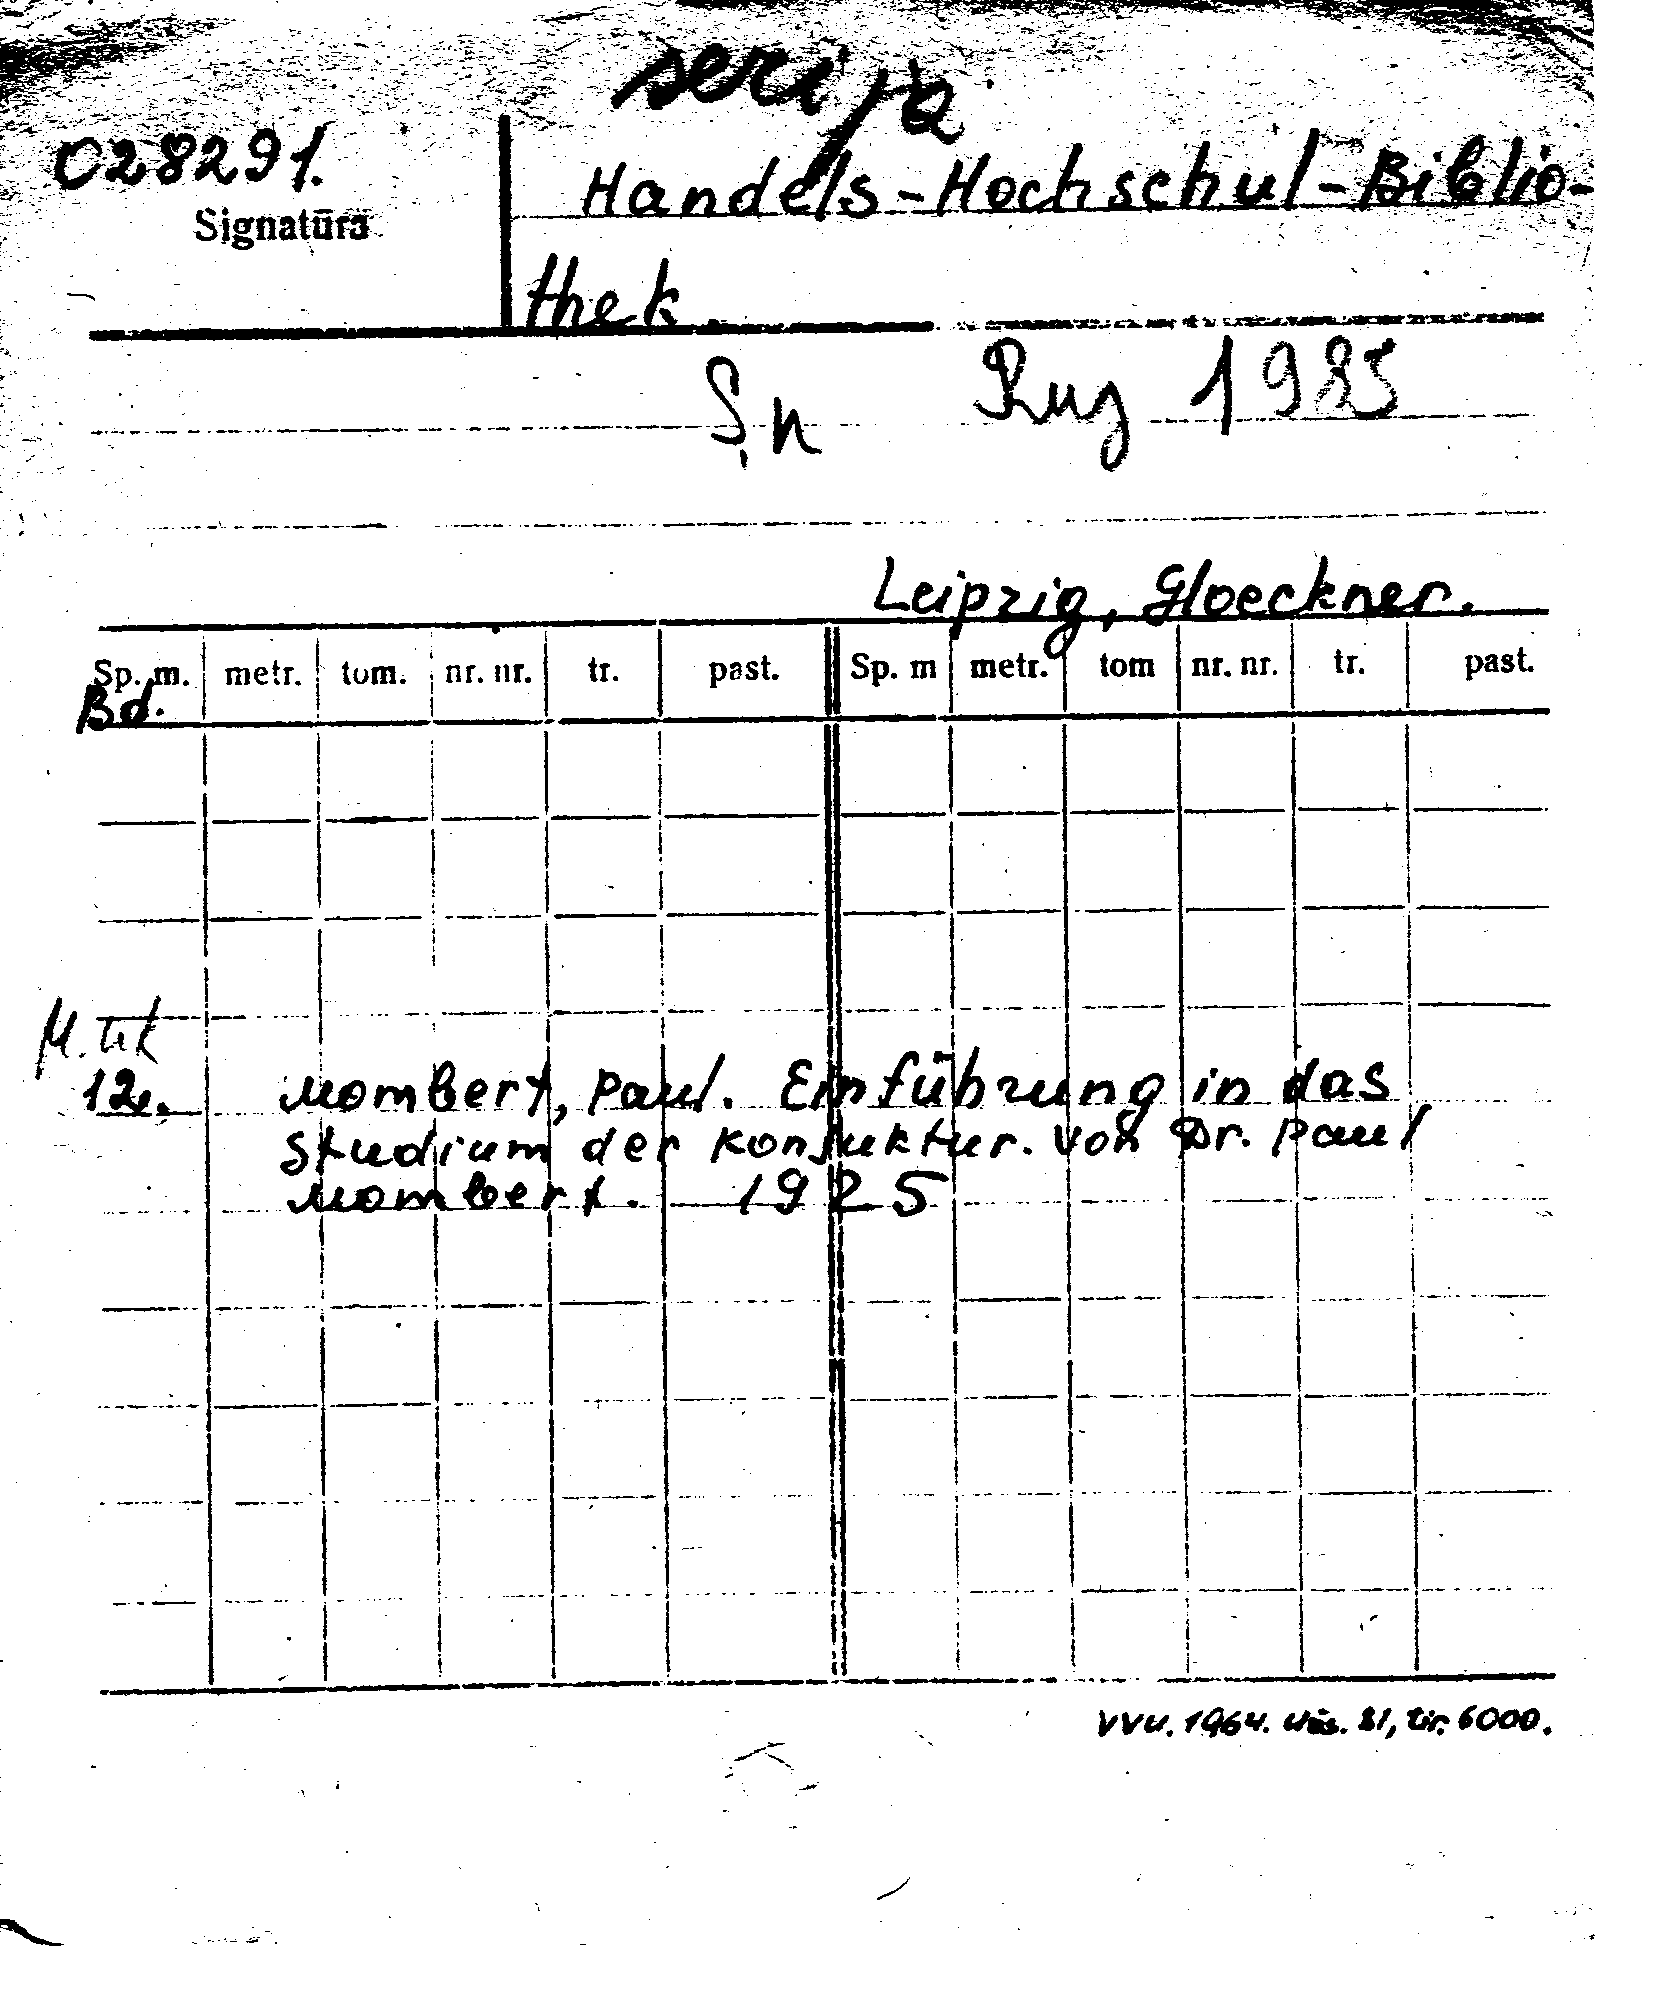 serija
028291.
Signatūra
Handels-Hochschul-Biblio-
thek
S.n Rug 1985
Leipzig, Gloeckner.
Sp. m. metr. tom. nr. nr. tr. past. Sp. m metr. tom nr. nr. tr. past.
Bd.
12. Mombert, Paul. Einführung in das
Studium der Konjuktur. Von Dr. Paul
Mombert. 1925
VVU. 1964. Užs. 81, tir. 6000.